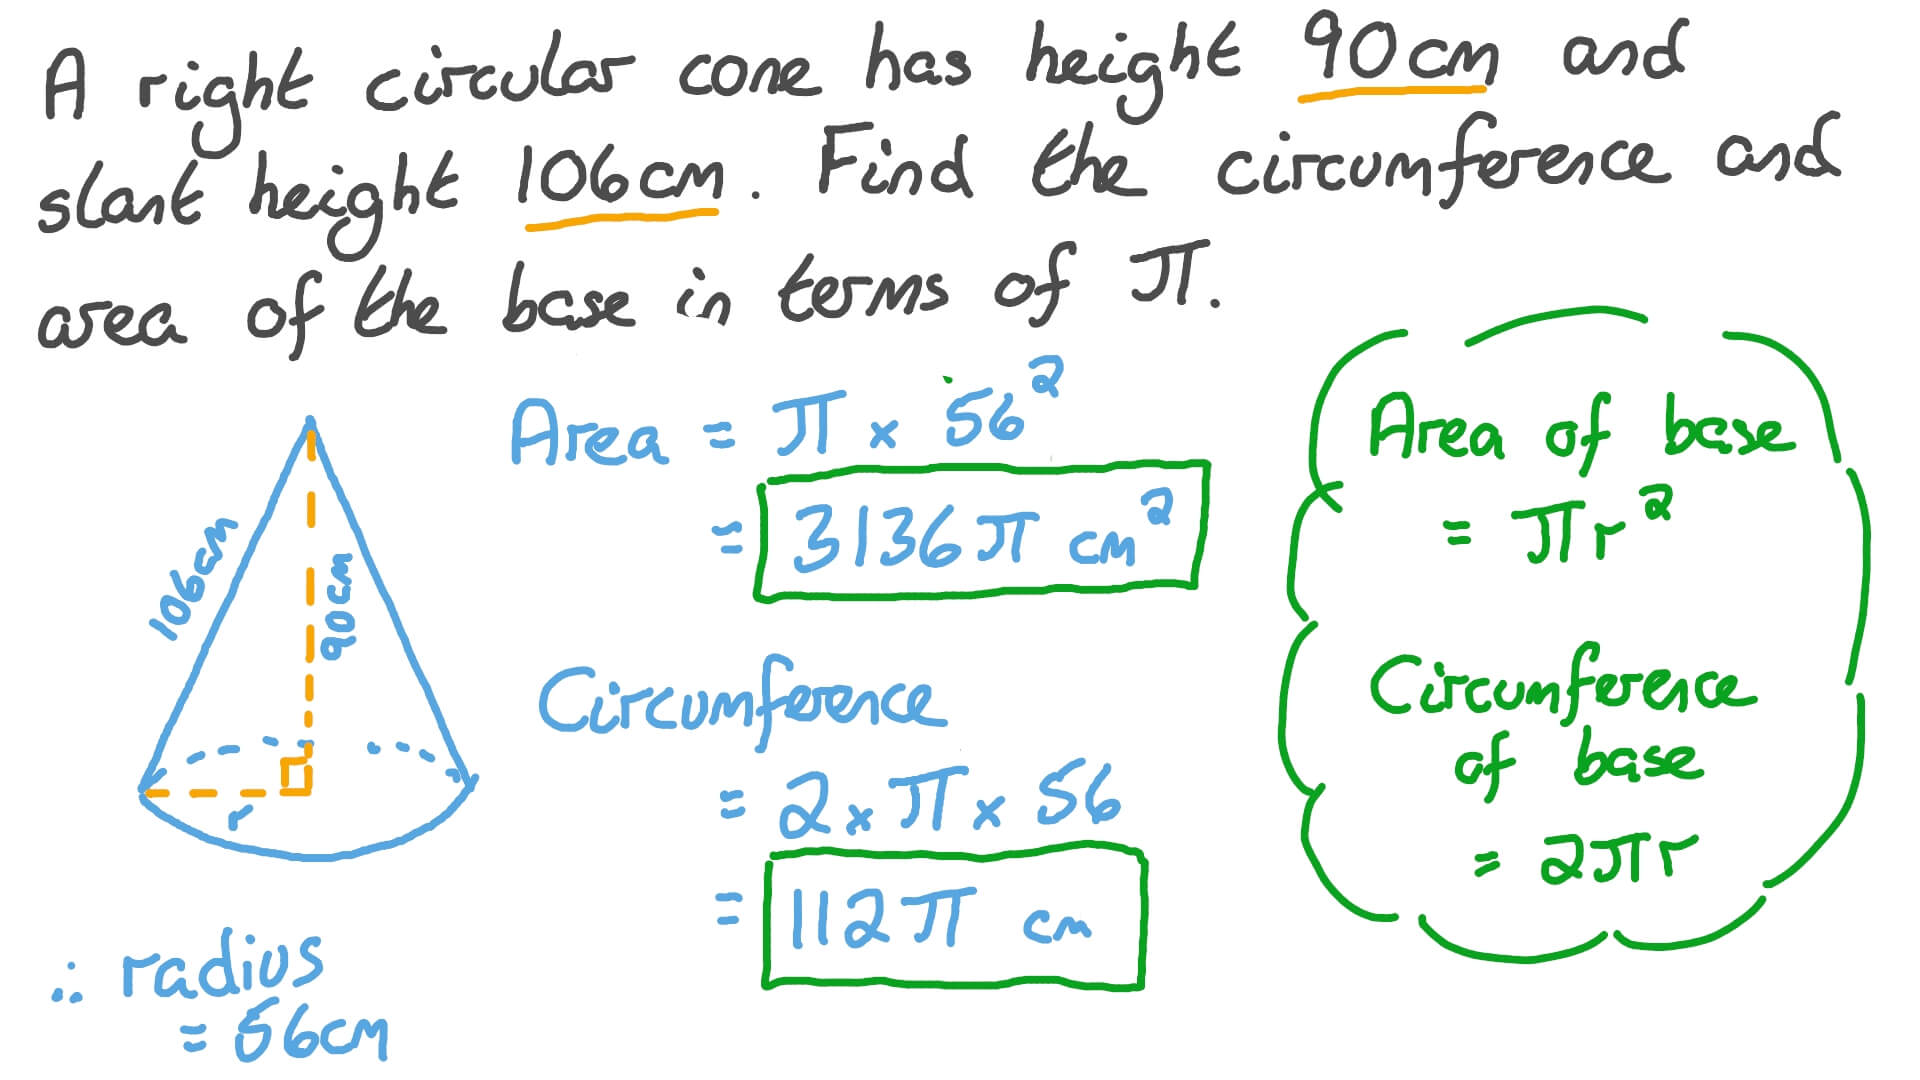 A right circular cone has height 90cm and
slant height 106cm. Find the circumference and
area of the base in terms of π.
106cm
90cm
r
∴ radius
= 56cm
Area = π × 56²
= 3136π cm²
Circumference
= 2 × π × 56
= 112π cm
Area of base
= πr²
Circumference
of base
= 2πr